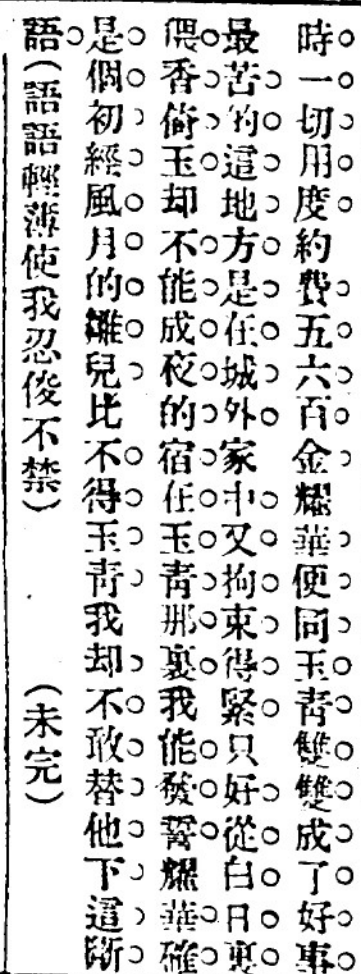 時一切用度約費五六百金耀華便同玉靑雙雙成了好事
最苦的這地方是在城外家中又拘束得緊只好從白日裏
偎香倚玉却不能成夜的宿在玉靑那裏我能發誓耀華確
是個初經風月的雛兒比不得玉靑我却不敢替他下這斷
語(語語輕薄使我忍俊不禁) (未完)